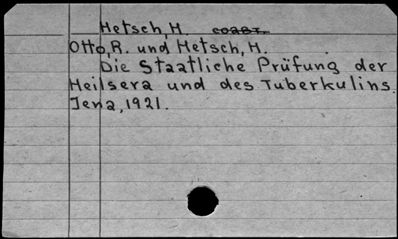 Hetsch, H. coaut.
Otto, R. und Hetsch, H.
Die Staatliche Prüfung der
Heilsera und des Tuberkulins.
Jena, 1921.